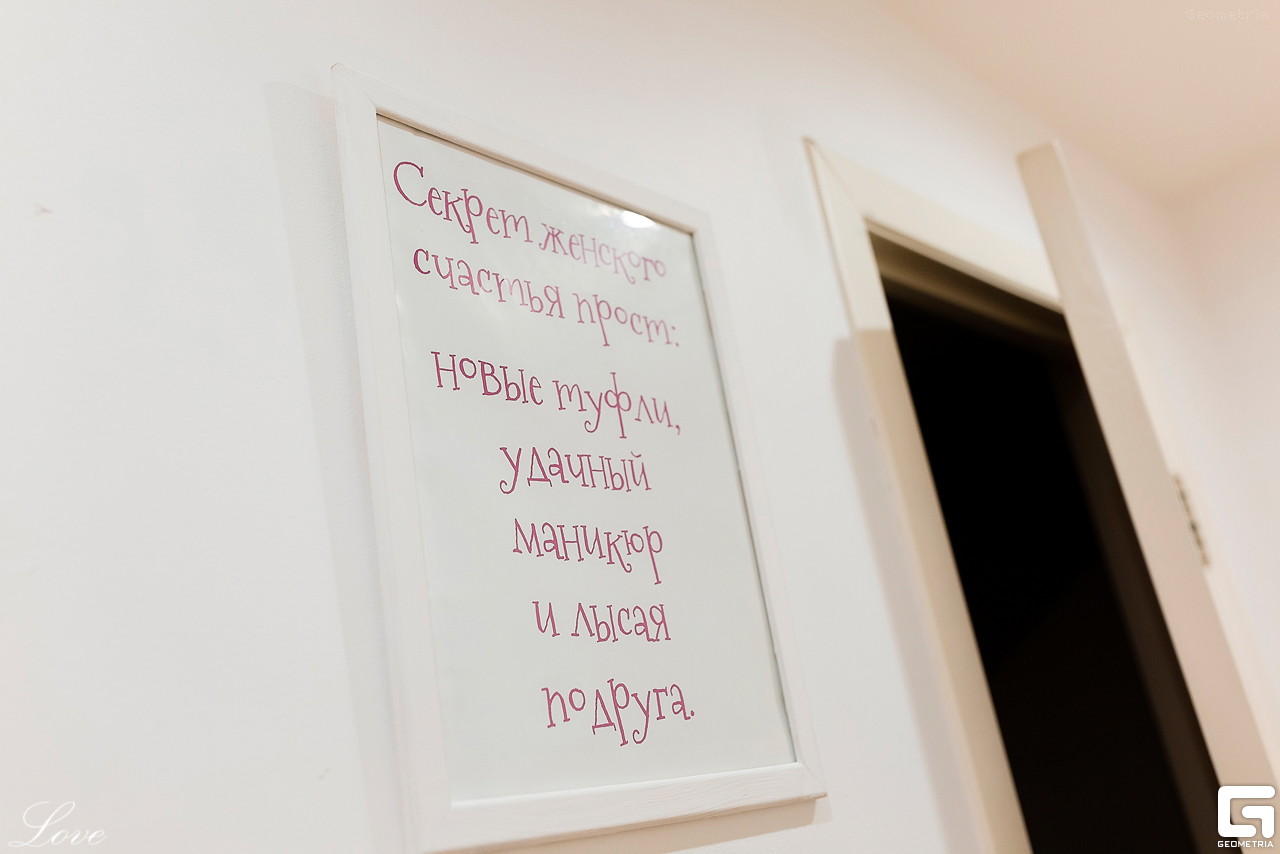 Geometria
Секрет женского
счастья прост:
новые туфли,
удачный
маникюр
и лысая
подруга.
Love
GEOMETRIA